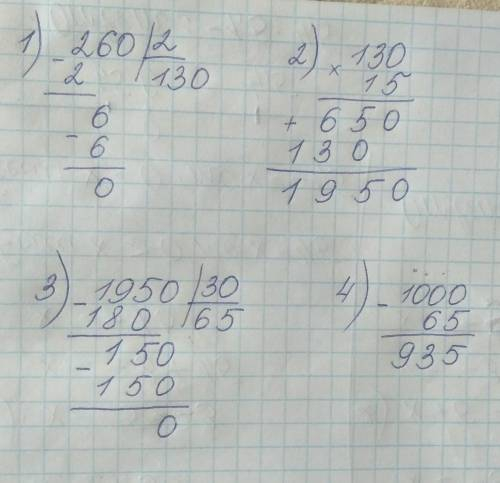 1) - 260 | 2
2 | 130
6
- 6
0
2) × 130
15
+ 650
130
1950
3) - 1950 | 30
180 | 65
- 150
150
0
4) - 1000
65
935